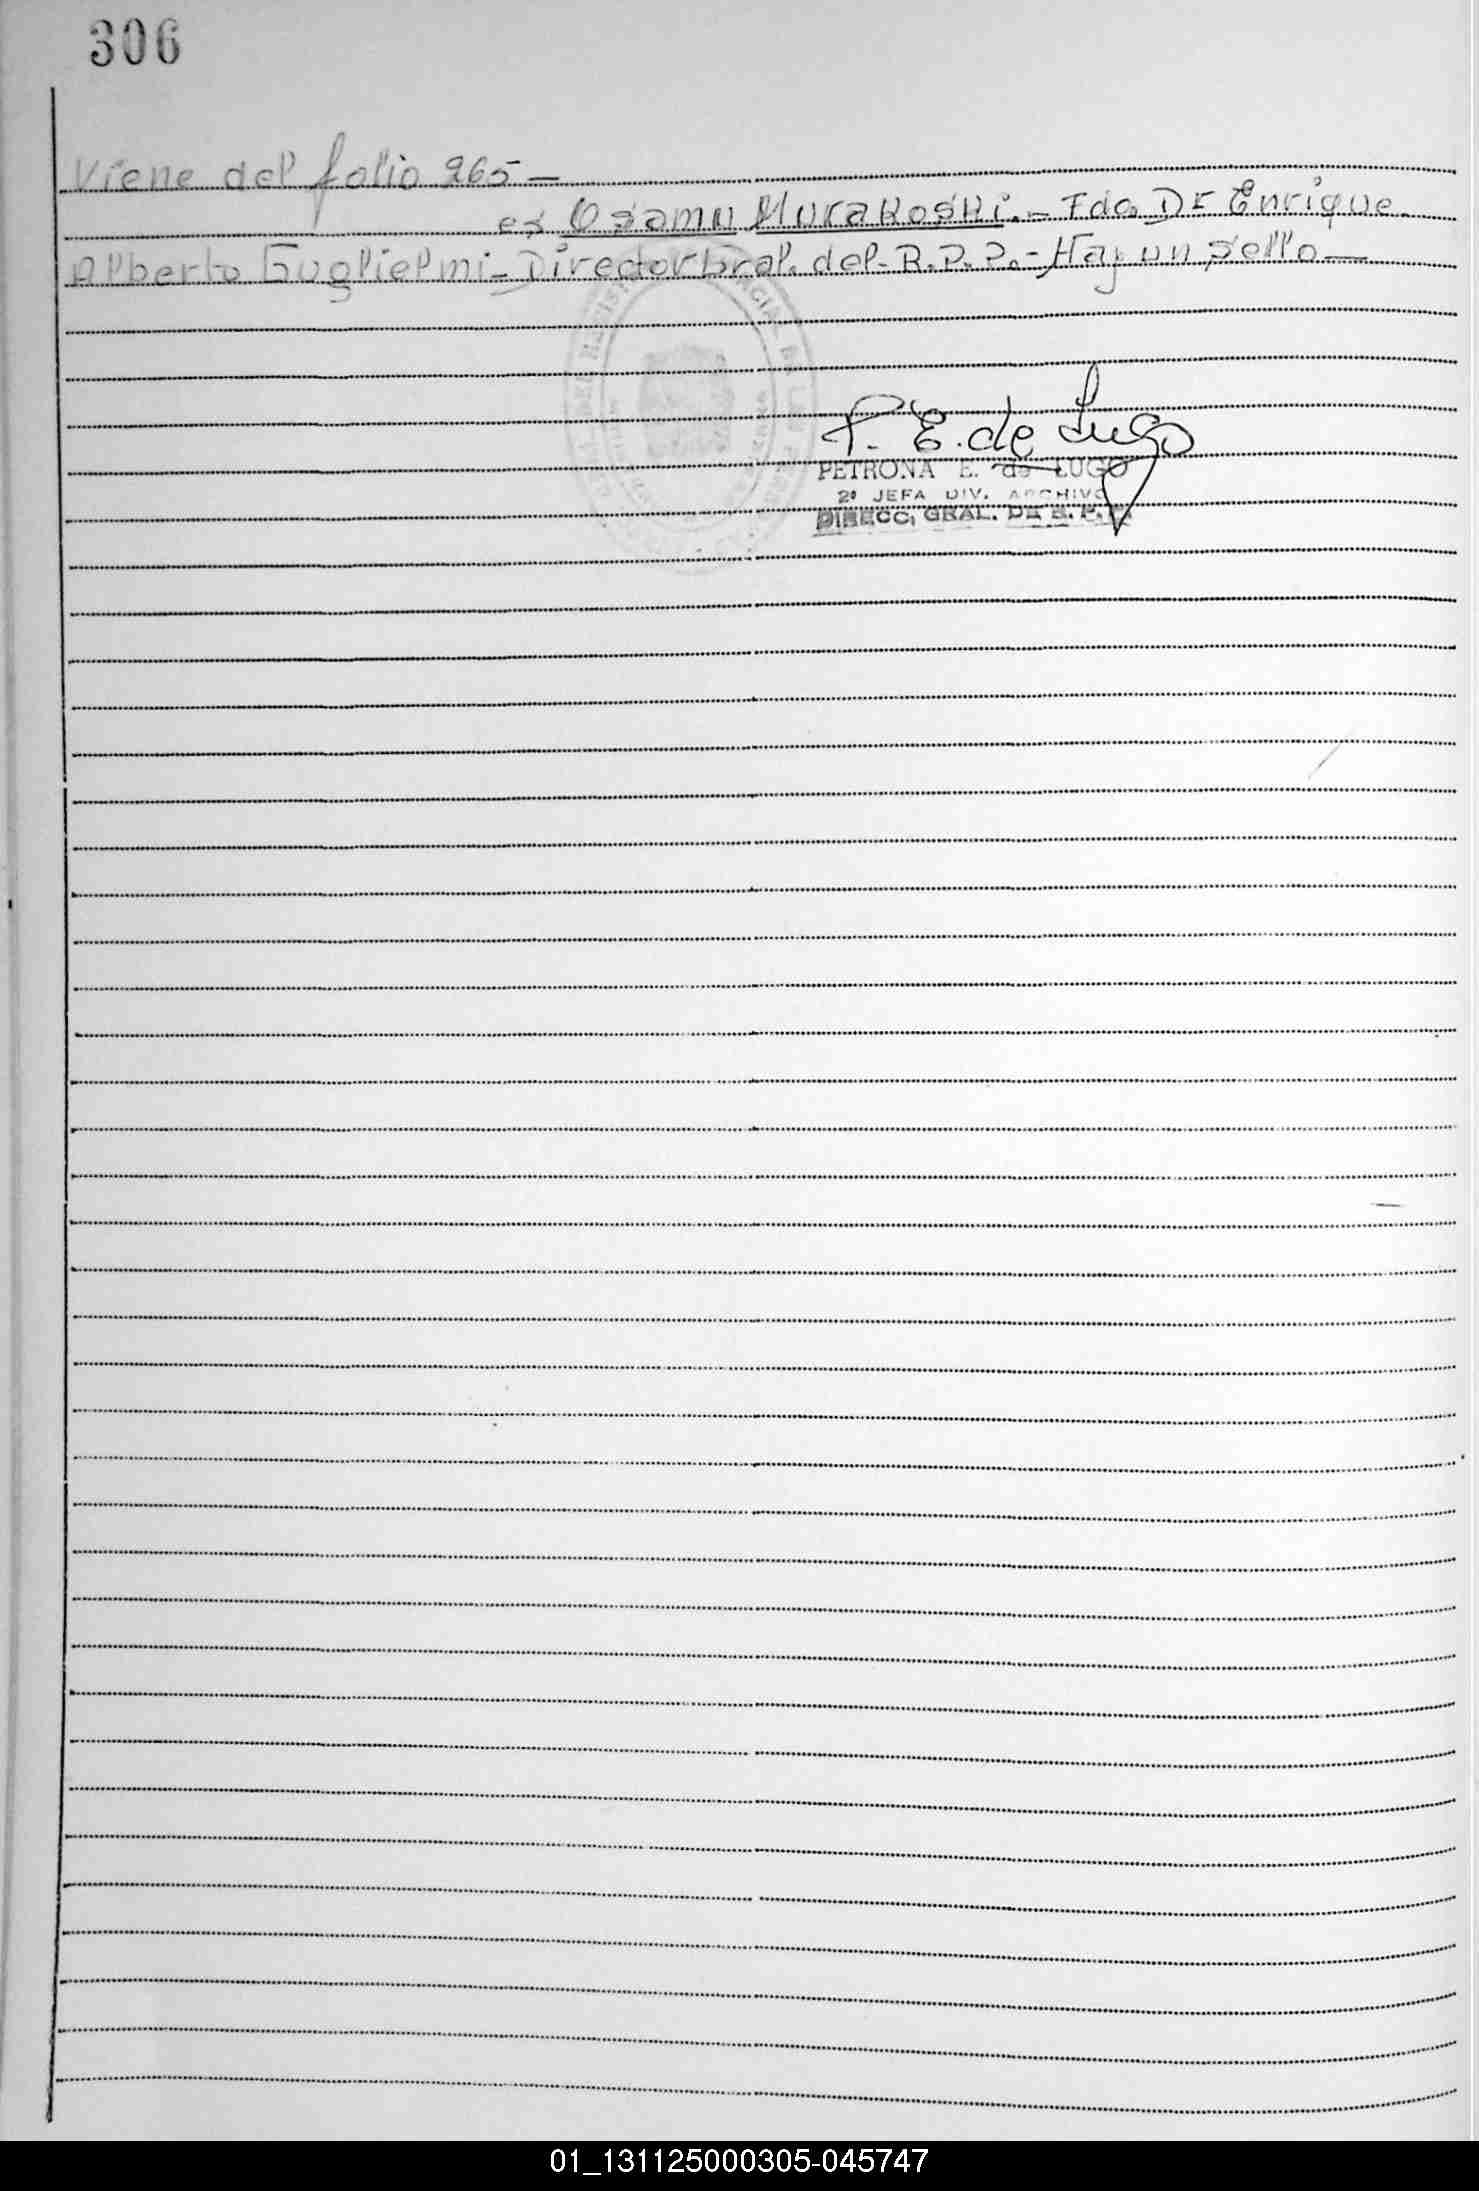 306
Viene del folio 265—
es Osamu Murakoshi.- Fdo. Dr Enrique
Alberto Guglielmi- Director Gral. del R.P.P.- Hay un sello—
P. E. de Lugo
PETRONA E. de LUGO
2º JEFA DIV. ARCHIVO
DIRECC. GRAL. DE R. P. P.
01_131125000305-045747